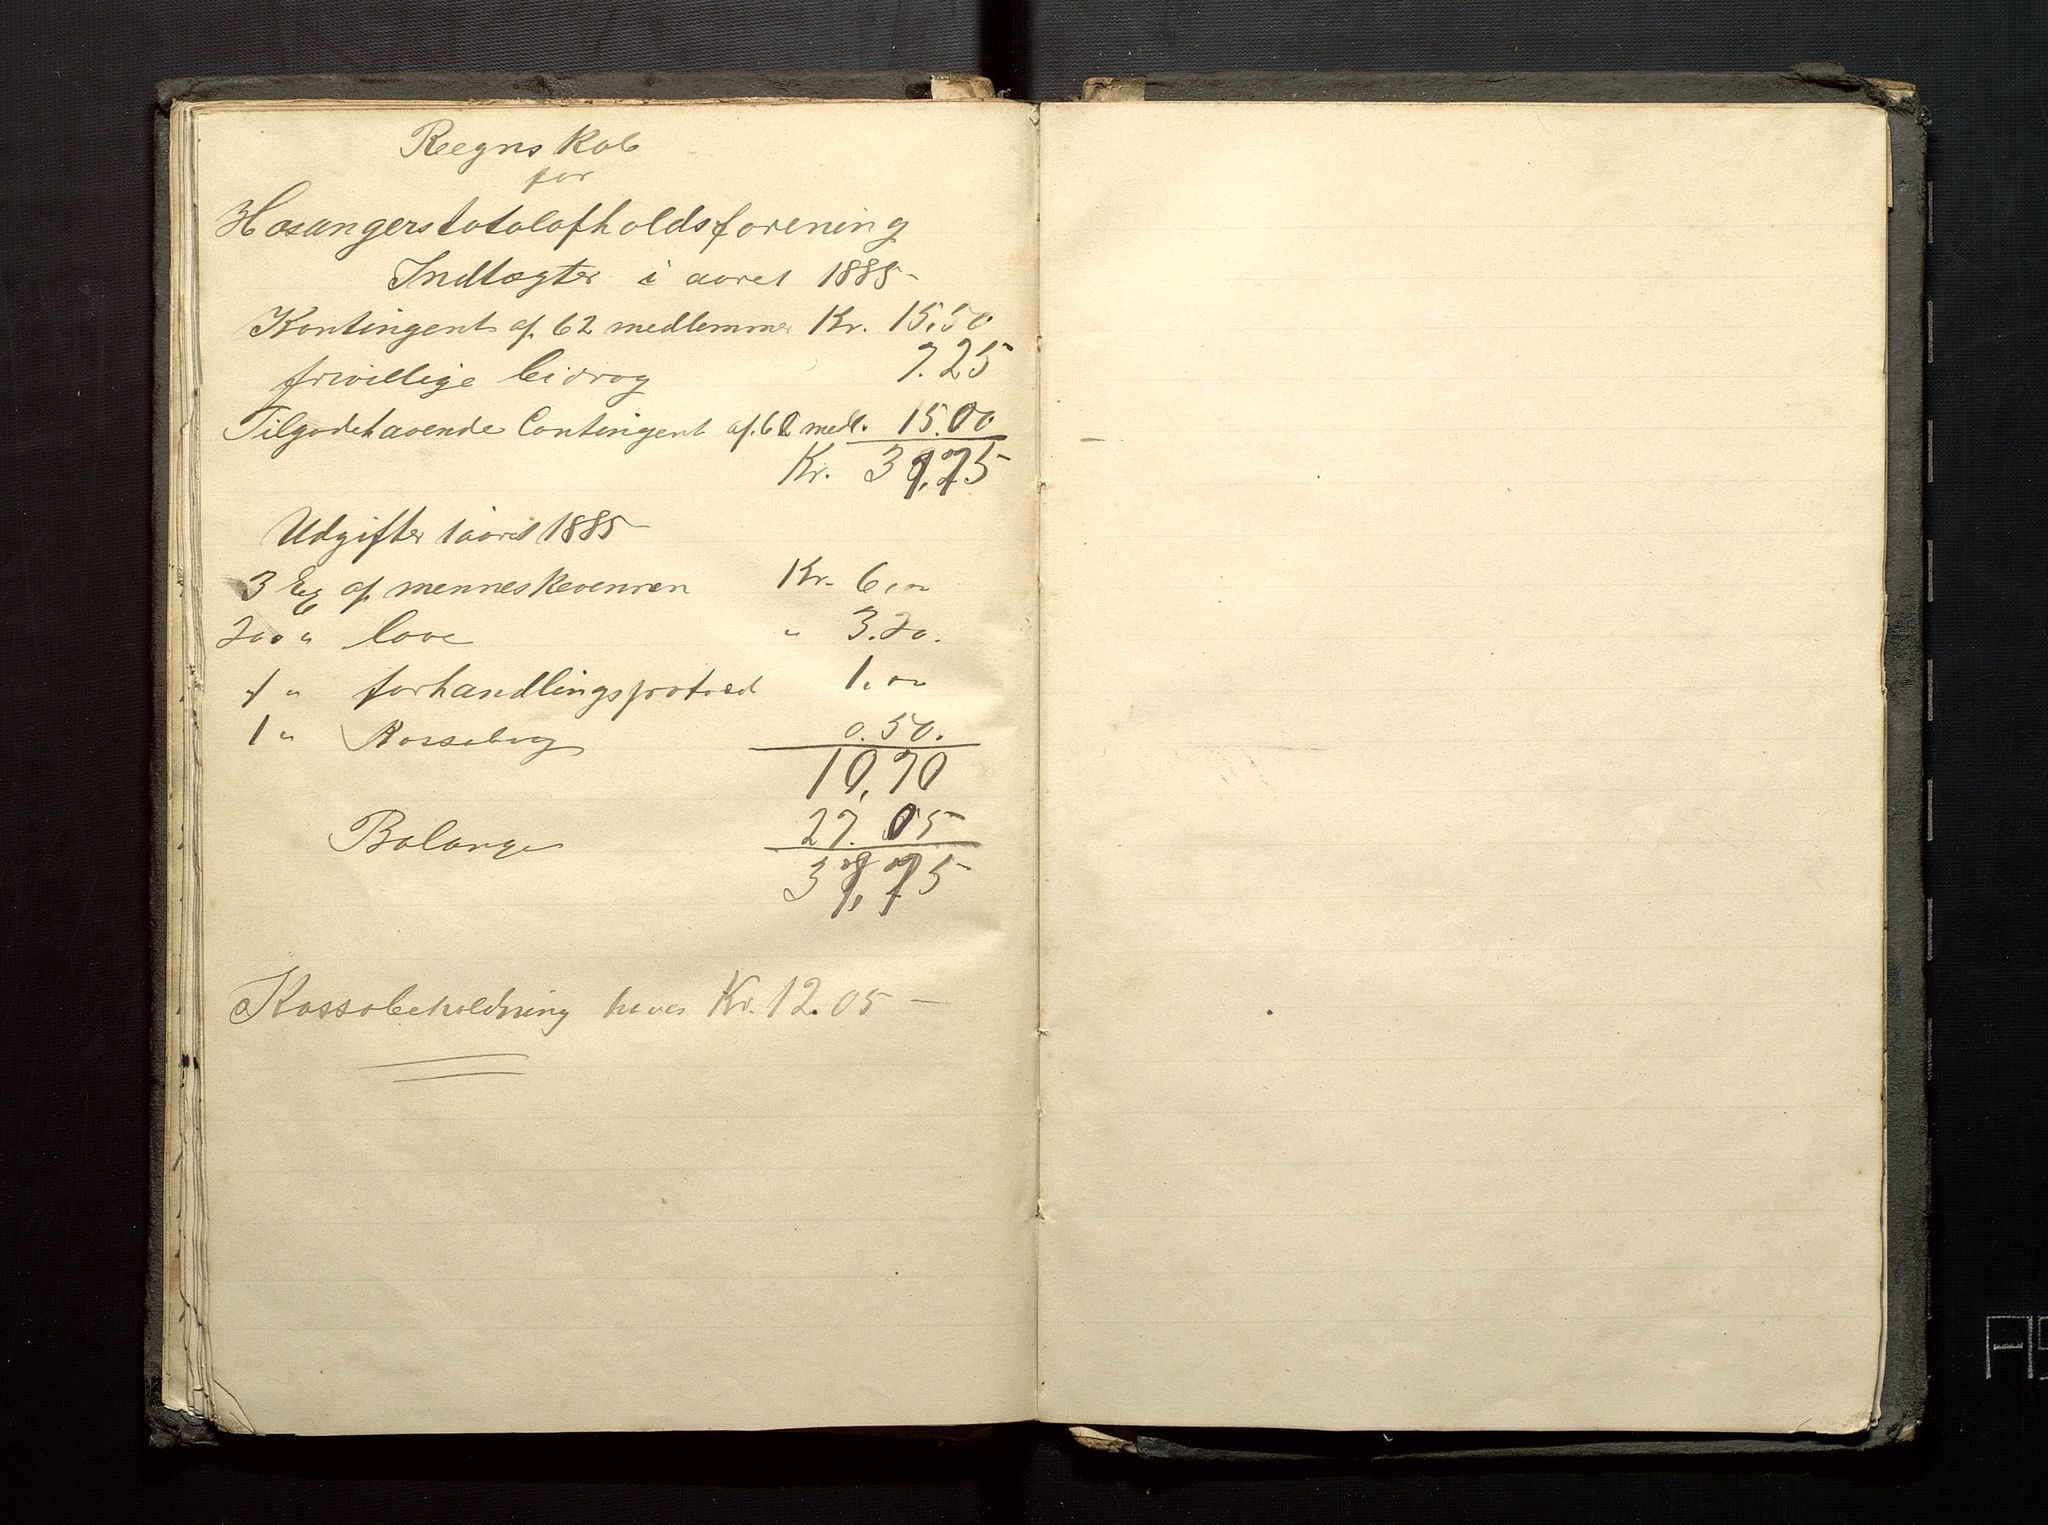 Reegnskab
for
Hosangers totalafholdsforening
Indtægter i aaret 1885
Kontingent af 62 medlemmer Kr. 15,50
frivillige bidrag 7.25
Tilgodehavende Contingent af. 62 medl. 15.00
Kr. 37,75
Udgifter i aaret 1885
3 Eg af menneskevennen Kr. 6,00
200 " love " 3.20.
1 " forhandlingsprotocol 1.00
1 " Kassabog 0.50.
10,70
Balange 27.05
37,75
Kassabeholdning haves Kr. 12.05